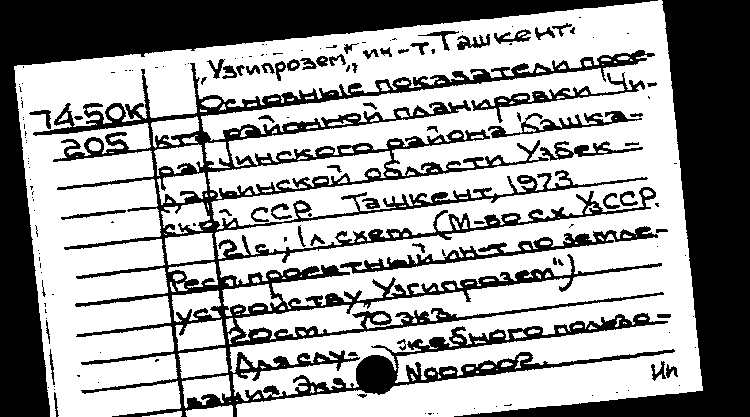 „Узгипрозем", ин-т. Ташкент.
74-50К
205
Основные показатели прое-
кта районной планировки Чи-
ракчинского района Кашка-
дарьинской области Узбек-
ской ССР. Ташкент, 1973
21с.; 1л. схем. (М-во с.х. УзССР.
Респ. проектный ин-т по земле-
устройству „Узгипрозем").
20см. 70 экз.
Для слу- жебного пользо-
вания. Экз. N000002.
Ип